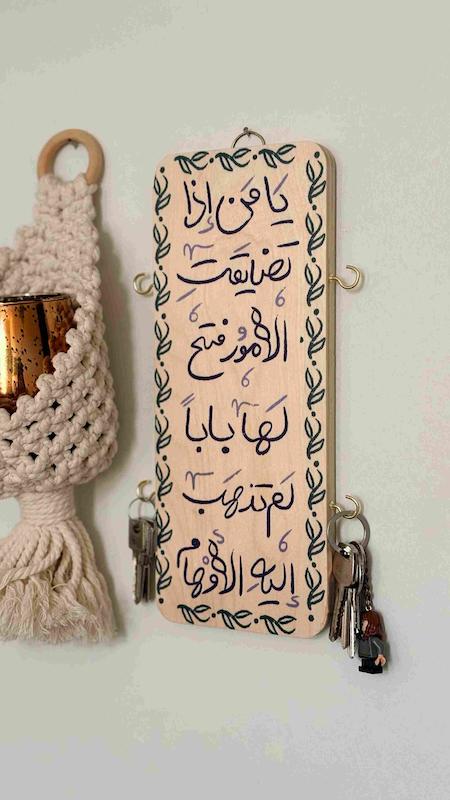 يَا مَن إِذا
تَضايَقَتِ
الأُمُورُ فتحَ
لَهَا بَاباً
لَم تذهَب
إِليهِ الأَوْهَامُ